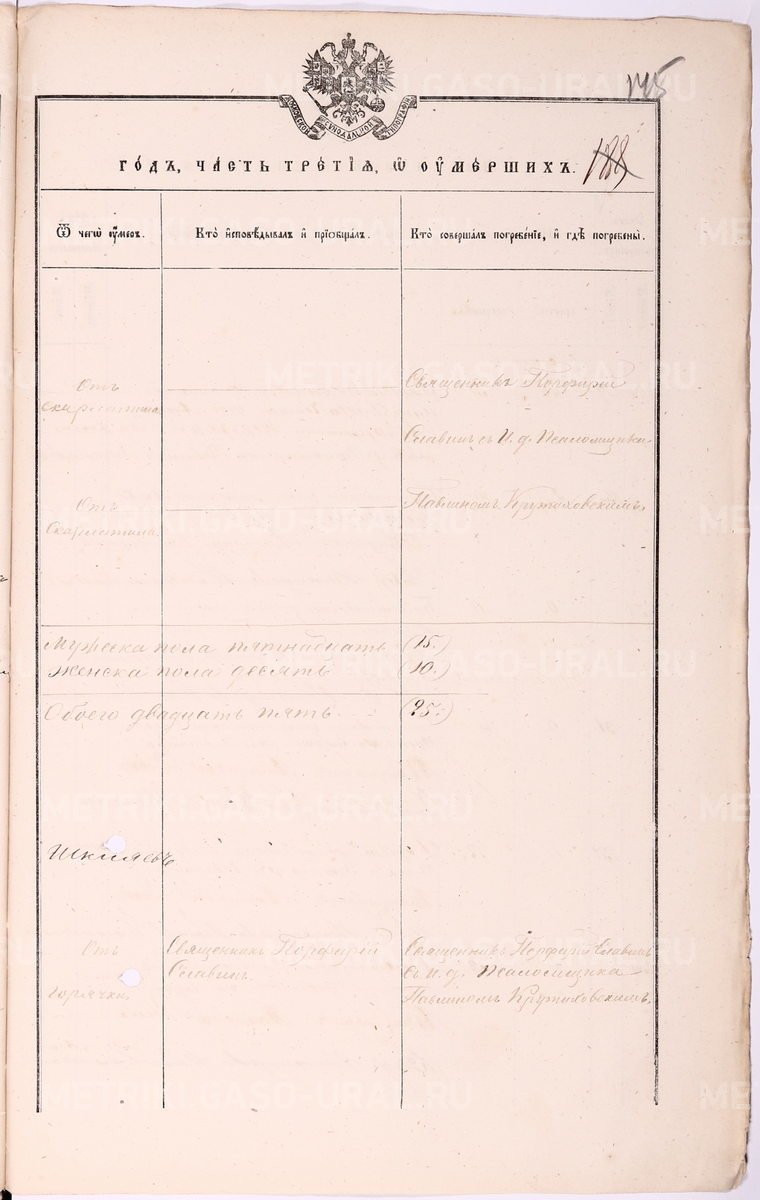 145
188
МОСКОВСКОЙ СѴНОДАЛЬНОЙ ТИПОГРАФІИ
ГОДЪ, ЧАСТЬ ТРЕТІЯ, Ѡ ОУМЕРШИХЪ.
Ѿ чегѡ оумеръ.
Кто исповѣдывалъ и пріобщалъ.
Кто совершалъ погребеніе, и гдѣ погребены.
Отъ
скарлатина
Священникъ Порфирій
Славинъ съ И. д. Псаломщика
Отъ
Скарлатина.
Павлиномъ Кружковскимъ.
Мужеска пола пятнадцать (15.)
Женска пола десять (10.)
Обоего двадцать пять. (25.)
Отъ
горячки.
Священникъ Порфирій
Славинъ.
Священникъ Порфирій Славинъ
съ и. д. Псаломщика
Павлиномъ
METRIKI.GASO-URAL.RU